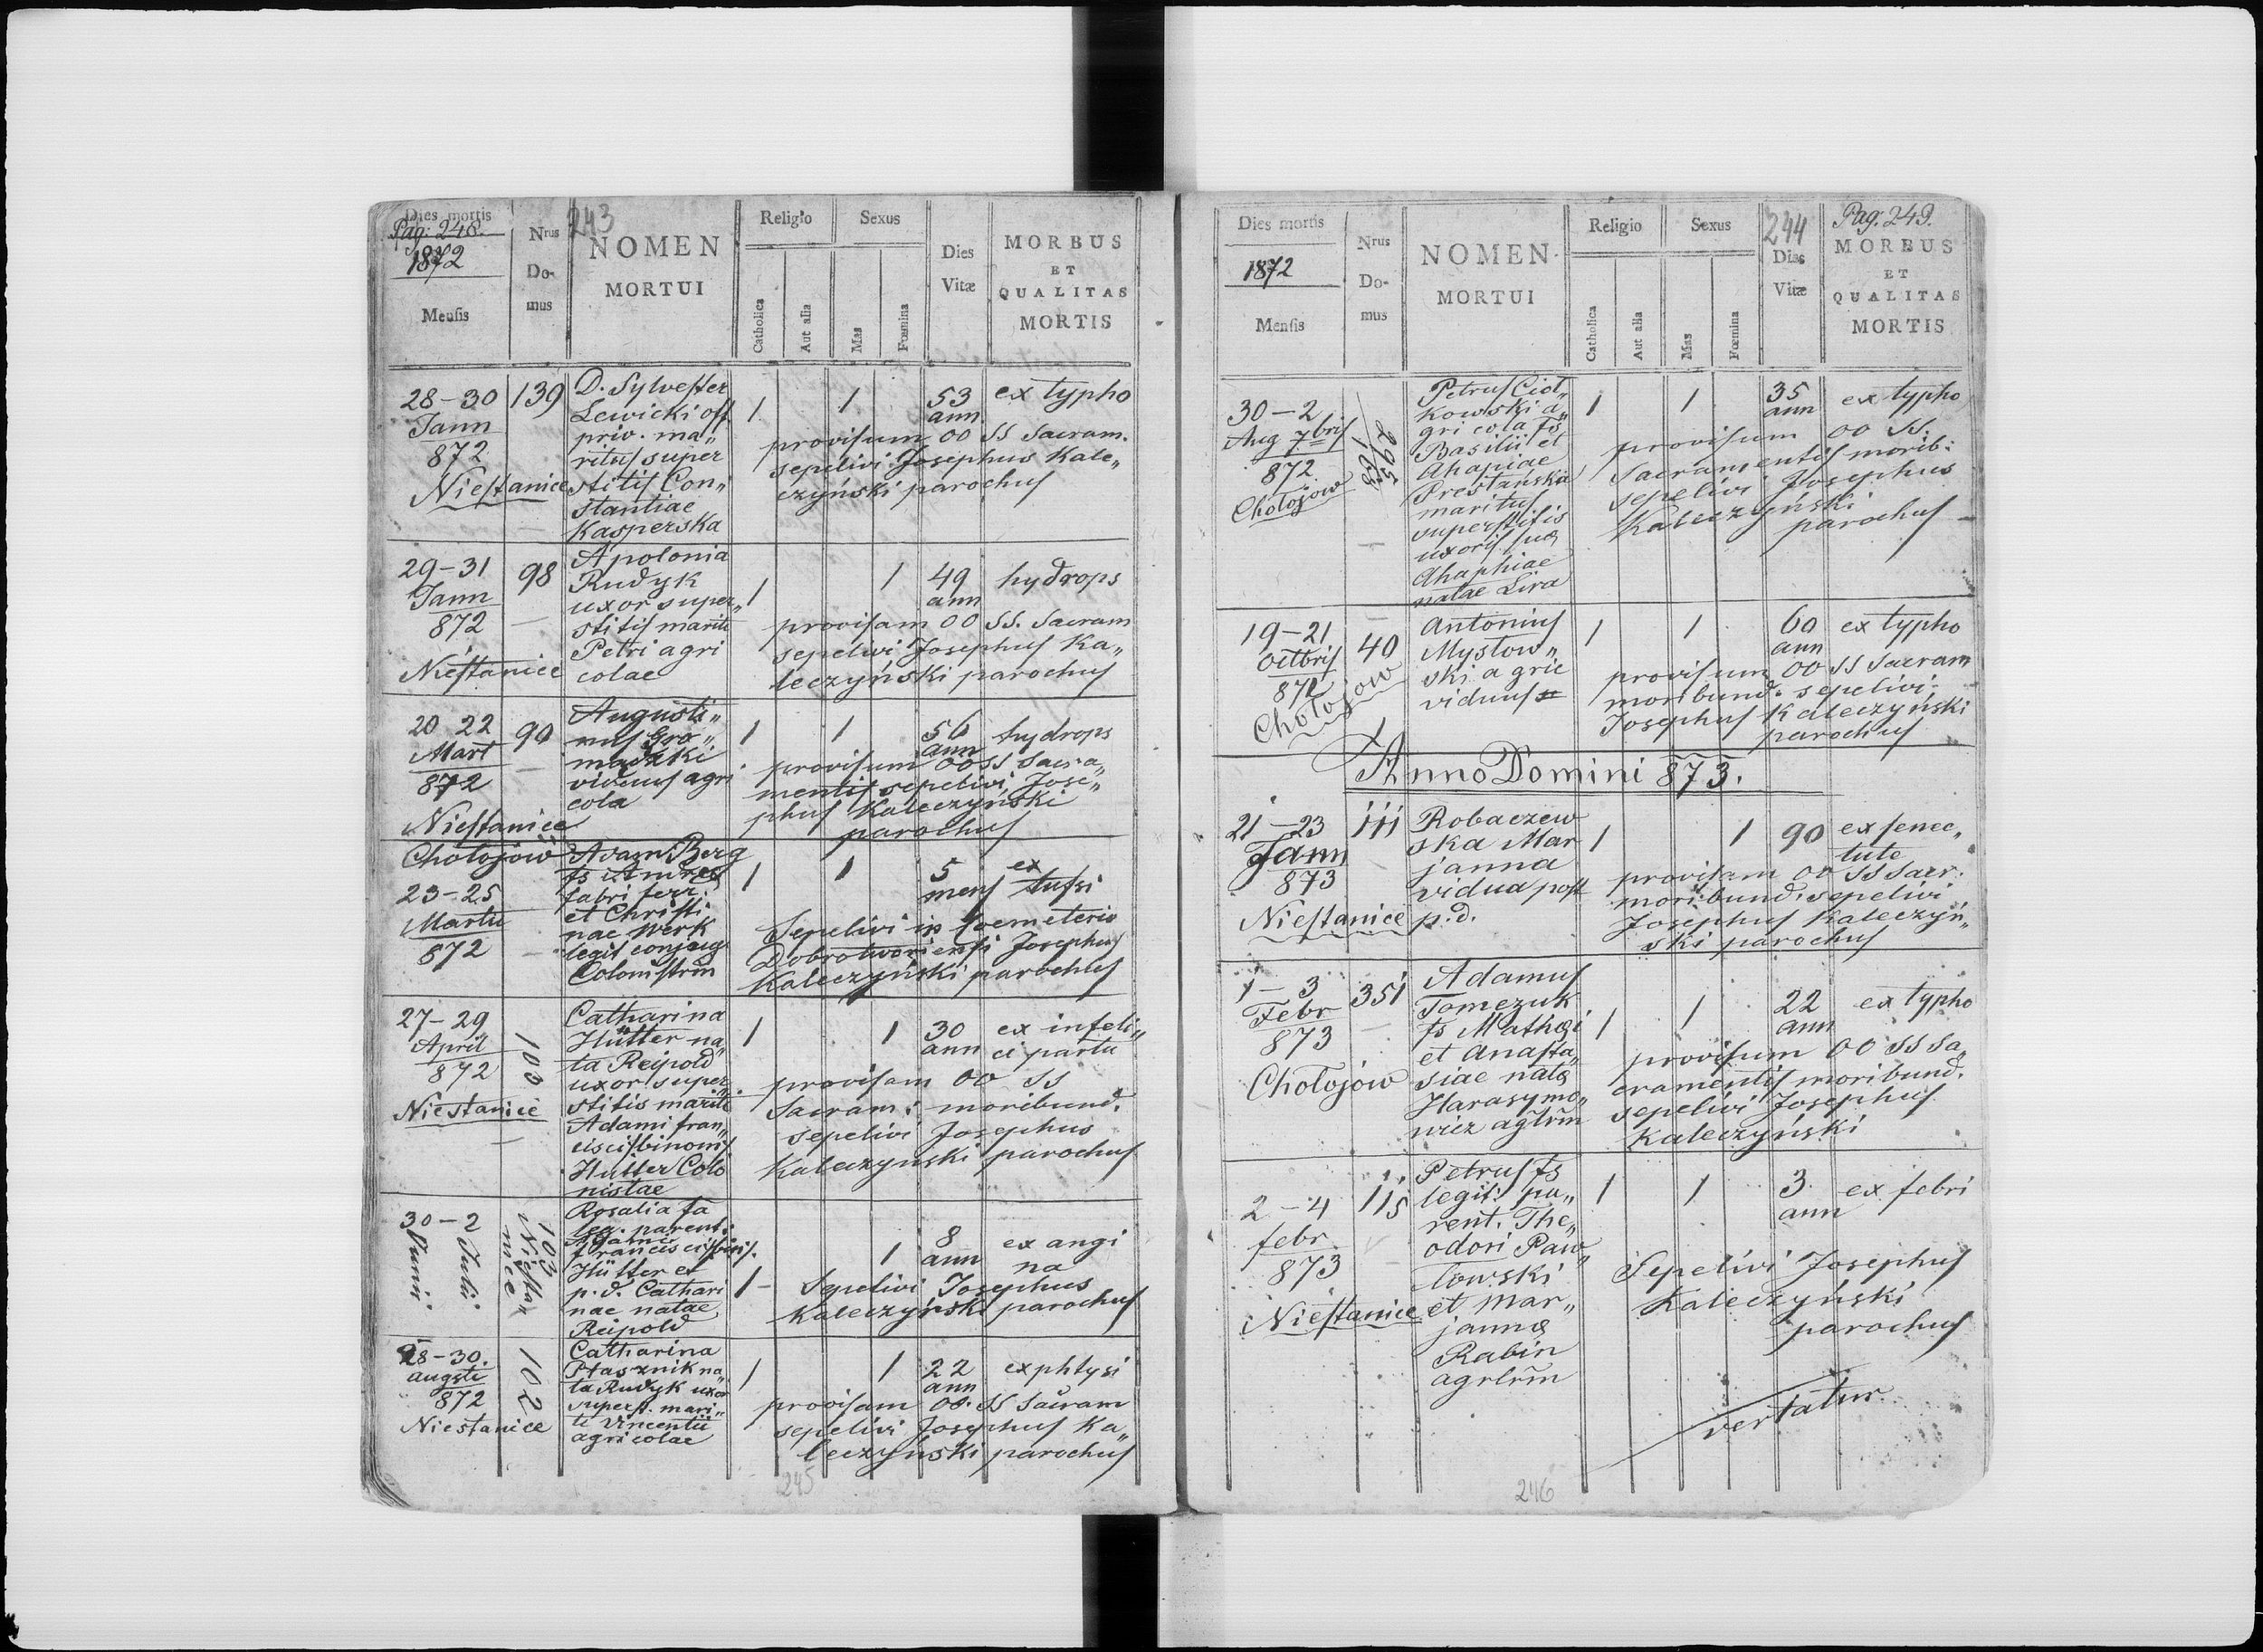 Dies mortis
Pag: 248.
1872
Mensis
Nrus
Do-
mus
243
NOMEN
MORTUI
Religio
Catholica
Aut alia
Sexus
Mas
Fœmina
Dies
Vitæ
MORBUS
ET
QUALITAS
MORTIS
28-30
Jann
872
Niestanice
139
D. Sylvester
Lewicki off.
priv. ma„
ritus super
stitis Con„
stantiae
Kasperska
1
1
53
ann
ex typho
provisum OO SS Sacram.
sepelivi Josephus Kale„
czyński parochus
29-31
Jann
872
Niestanice
98
Apolonia
Rudyk
uxor super„
stitis mariti
Petri agri
colae
1
1
49
ann
hydrops
provisam OO SS. Sacram
sepelivi Josephus Ka„
leczyński parochus
20 22
Mart
872
Niestanice
90
Augusti„
nus Gro„
madzki
viduus agri
cola
1
1
56
ann
hydrops
provisum OO SS Sacra„
mentis sepelivi Jose„
phus Kaleczyński
parochus
Chołojów
23-25
Martii
872
Adam Berg
fs Andreæ
fabri ferr:
et Christi
nae Werk
legit conjug
Colonistrm
1
1
5
mens
ex
tussi
Sepelivi in Coemeterio
Dobrotworiensi Josephus
Kaleczyński parochus
27-29
April
872
Niestanice
103
Catharina
Hütter na„
ta Reipold
uxor super„
stitis mariti
Adami fran„
cisci binomis
Hütter Colo
nistae
1
1
30
ann
ex infeli„
ci partu
provisam OO SS
Sacram: moribund.
sepelivi Josephus
Kaleczynski parochus
30-2
Junii Julii
103
Niestan
nice
Rosalia fa
leg. parent:
Adami
Francisci bin.
Hütter et
p.d. Cathari
nae natae
Reipold
1
1
8
ann
ex angi
na
Sepelivi Josephus
Kaleczyński parochus
28-30.
augsti
872
Niestanice
102
Catharina
Ptasznik na„
ta Rudyk uxor
superst. mari„
ti Vincentii
agricolae
1
1
22
ann
ex phtysi
provisam OO. SS Sacram
sepelivi Josephus Ka„
leczyński parochus
245
Dies mortis
1872
Mensis
Nrus
Do-
mus
NOMEN
MORTUI
Religio
Catholica
Aut alia
Sexus
Mas
Fœmina
244
Dies
Vitæ
Pag: 249.
MORBUS
ET
QUALITAS
MORTIS
30-2
Aug 7bris
872
Chołojów
295
Petrus Ciot„
kowski a„
gricola fs
Basilii et
Ahapiae
Prestańska
maritus
superstitis
uxoris suæ
Ahaphiae
natae Lira
1
1
35
ann
ex typho
provisum OO SS.
Sacramentis morib:
sepelivi Josephus
Kaleczyński
parochus
19-21
Octbris
872
Chołojów
40
Antonius
Mysłow„
ski agric
viduus
1
1
60
ann
ex typho
provisum OO SS Sacram
moribund. sepelivi
Josephus Kaleczyński
parochus
Anno Domini 873.
21-23
Jann
873
Niestanice
111
Robaczew
ska Mar
janna
vidua post
p.d.
1
1
90
ex senec„
tute
provisam OO SS Sacr.
moribund. sepelivi
Josephus Kaleczyń„
ski parochus
1-3
Febr
873
Chołojów
351
Adamus
Tomczuk
fs Mathæi
et Anasta„
siae natæ
Harasymo„
wicz agrlrm
1
1
22
ann
ex typho
provisum OO SS Sa„
cramentis moribund.
sepelivi Josephus
Kaleczyński
2-4
febr
873
Niestanice
115
Petrus fs
legit: pa„
rent. The„
odori Paw„
lowski
et Mar„
jannæ
Rabin
agrlrm
1
1
3
ann
ex febri
Sepelivi Josephus
Kaleczyński
parochus
vertatur.
246